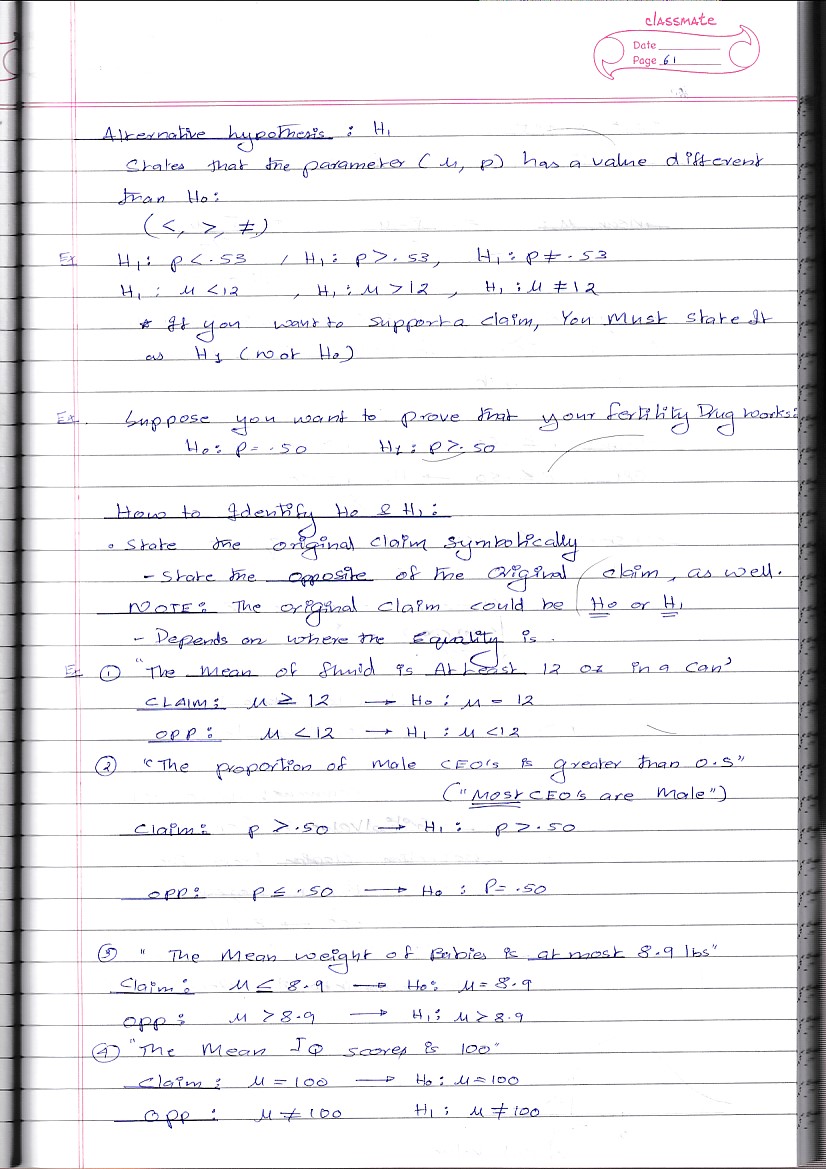 classmate
Date
Page 61
Alternative hypothesis : H₁
States that the parameter (μ, p) has a value different
than H₀:
(<, >, ≠)
Ex H₁: p < .53 , H₁: p > .53, H₁: p ≠ .53
H₁: μ < 12 , H₁: μ > 12 , H₁: μ ≠ 12
* If you want to support a claim, You Must state It
as H₁ (not H₀)
Ex. Suppose you want to prove that your fertility Drug works:
H₀: p = .50 H₁: p > .50
How to Identify H₀ & H₁:
• State the original claim symbolically
- State the opposite of the original claim, as well.
NOTE: The original claim could be H₀ or H₁
- Depends on where the Equality is.
Ex ① "The mean of fluid is At Least 12 oz in a can"
CLAIM: μ ≥ 12 → H₀: μ = 12
OPP: μ < 12 → H₁: μ < 12
② "The proportion of male CEO's is greater than 0.5"
("Most CEO's are Male")
Claim: p > .50 → H₁: p > .50
OPP: p ≤ .50 → H₀: P = .50
③ "The Mean weight of Babies is at most 8.9 lbs"
Claim: μ ≤ 8.9 → H₀: μ = 8.9
OPP: μ > 8.9 → H₁: μ > 8.9
④ "The Mean IQ scores is 100"
Claim: μ = 100 → H₀: μ = 100
OPP: μ ≠ 100 H₁: μ ≠ 100